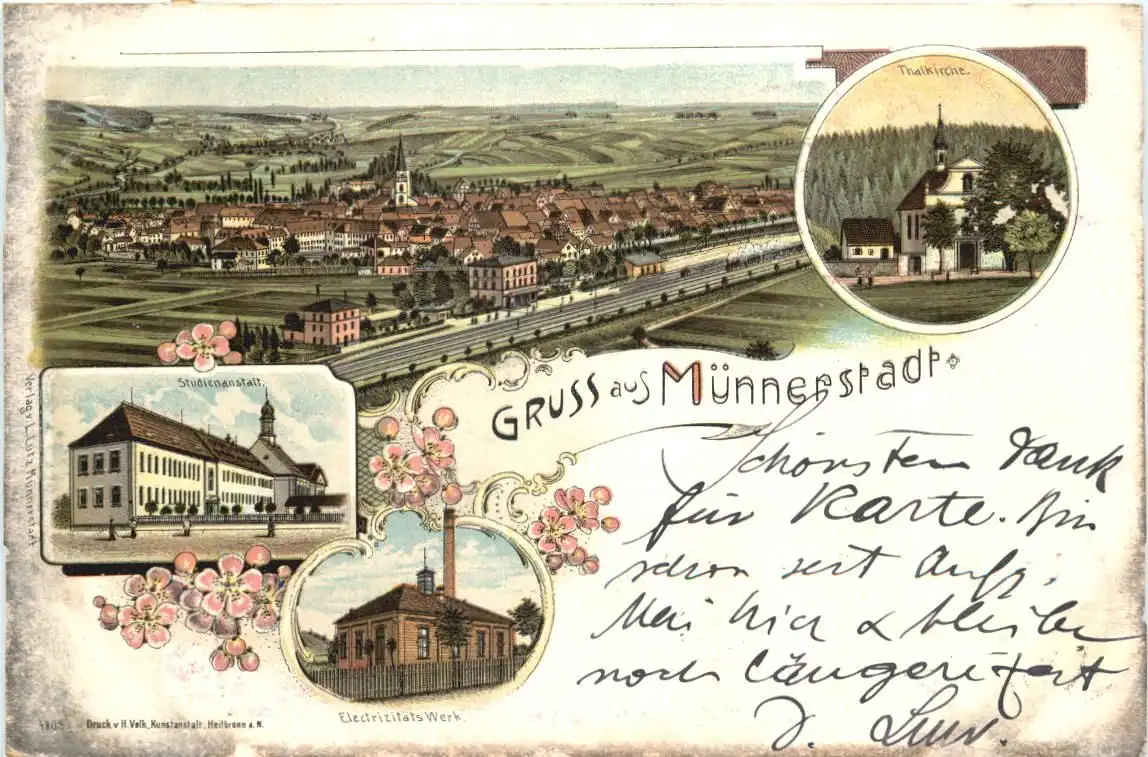 Thalkirche.
Studienanstalt.
GRUSS aus Münnerstadt
Schönsten Dank
für Karte. Bin
schon seit Anfg.
Mai hier & bleibe
noch längere Zeit
Electrizitäts Werk.
Verlag v. L. Lutz, Münnerstadt
Druck v. H. Volk, Kunstanstalt, Heilbronn a. N.